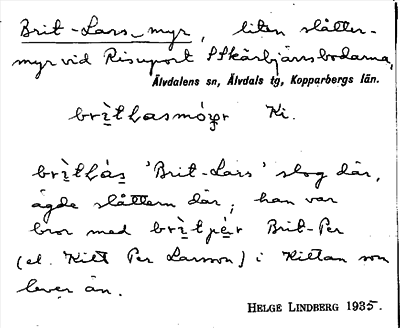 Brit-Lars-myr, liten slåtter-
myr vid Risuport S Skärbjärnsbodarna,
Älvdalens sn, Älvdals tg, Kopparbergs län.
Ki.
'Brit-Lars' slog där,
ägde slåttern där; han var
bror med Brit-Per
(el. Kitt Per Larsson) i Kittan som
lever än.
HELGE LINDBERG 1935.